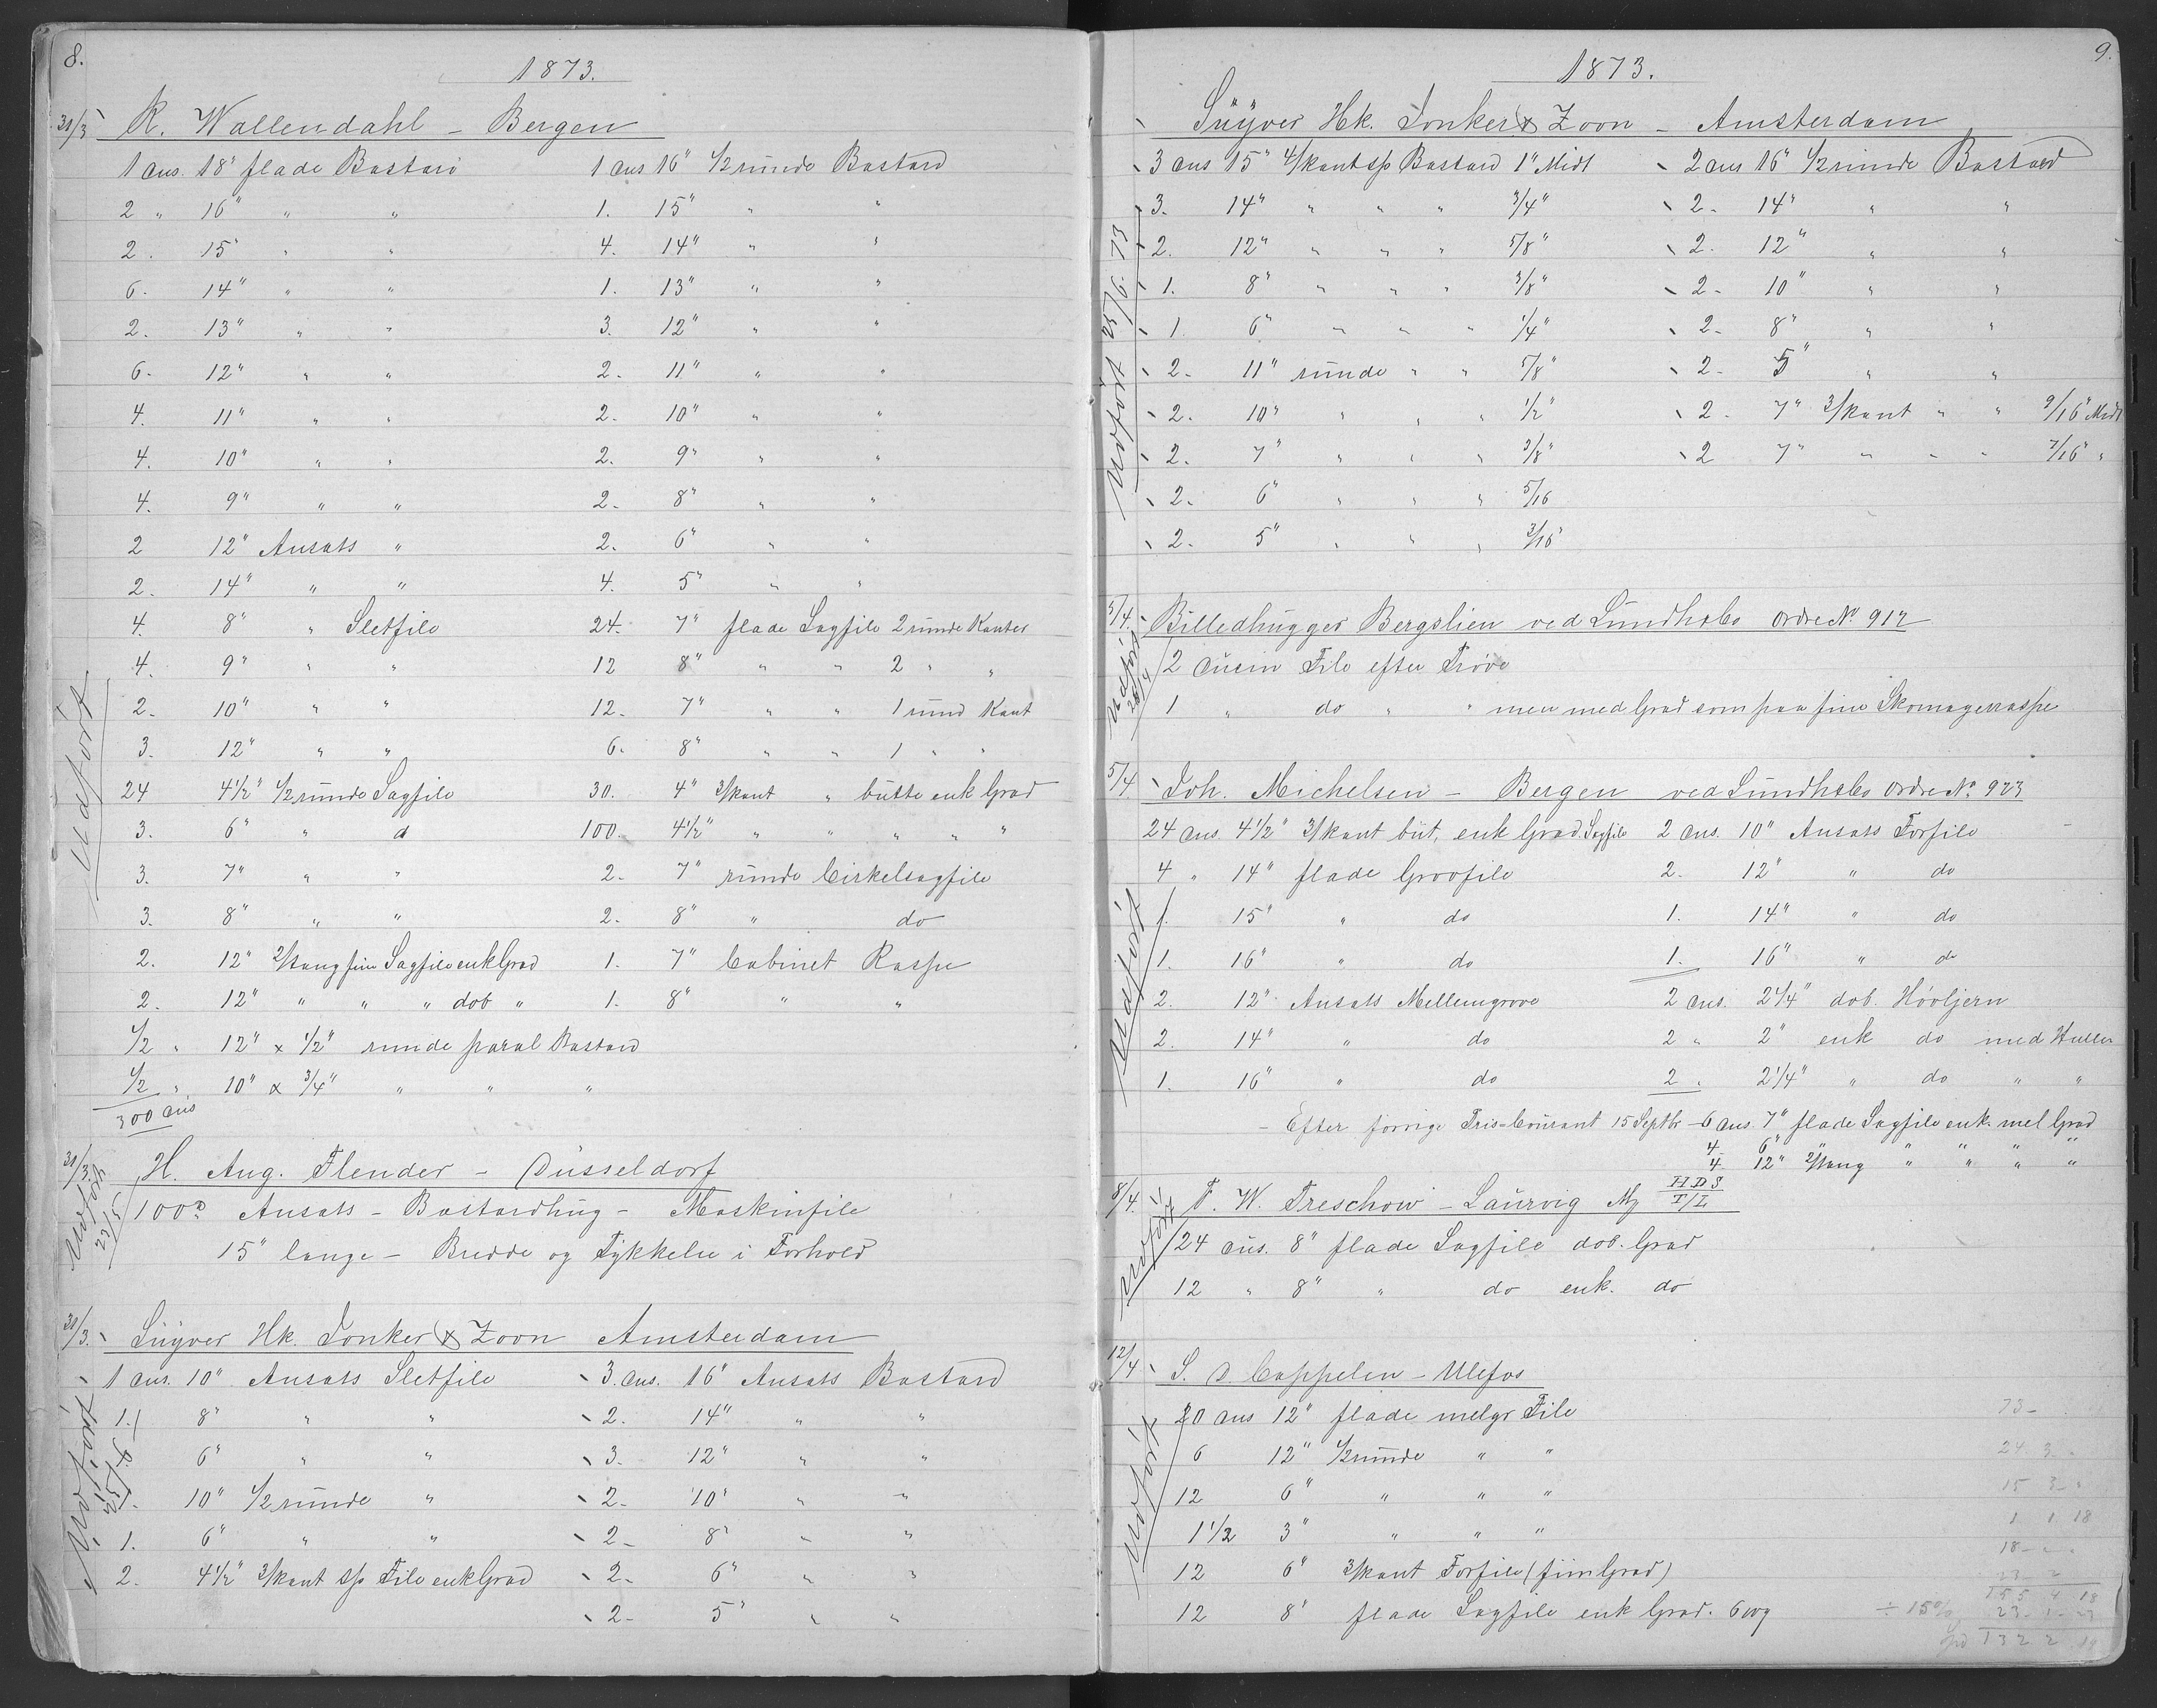 8.
1873.
31/3 R. Wallendahl - Bergen
1 dus. 18" flade Bastard
2 " 16" " "
2. 15" " "
6. 14" " "
2. 13" " "
6. 12" " "
4. 11" " "
4. 10" " "
4. 9" " "
2 12" Ansats "
2. 14" " "
4. 8" " Sletfile
4. 9" " "
2. 10" " "
3. 12" " "
24 4 1/2" 1/2 runde Sagfile
3. 6" " d
3. 7" " "
3. 8" " "
2. 12" fin Sagfile enk Grad
2. 12" " " " dob "
1/2 " 12" x 1/2" runde paral Bastard
1/2 " 10" x 3/4" " " "
300 dus
1 dus 16" 1/2 runde Bastard
1. 15" " "
4. 14" " "
1. 13" " "
3. 12" " "
2. 11" " "
2. 10" " "
2. 9" " "
2. 8" " "
2. 6" " "
4. 5" " "
24. 7" flade Sagfile 2 runde Kanter
12 8" " " 2 " "
12. 7" " " 1 rund Kant
6. 8" " " 1 " "
30. 4" 3/kant " butte enk Grad
100. 4 1/2" " " " " "
2. 7" runde Cirkelsagfile
2. 8" " do
1. 7" Cabinet Raspe
1. 8" " "
Udført
31/3. H. Aug. Flender - Düsseldorf
100 D Ansats - Bastardhug - Maskinfile
15" lange - Bredde og Tykkelse i Forhold
Udført
31/3. Suyver Hk. Jonker & Zoon Amsterdam
1 dus. 10" Ansats Sletfile
1. 8" " "
6" " "
1. 10" 1/2 runde "
1. 6" " "
2. 4 1/2" 3/kant sp File enk Grad
3. dus. 16" Ansats Bastard
2. 14" " "
3. 12" " "
2. 10" " "
2. 8" " "
2. 6" " "
2. 5" " "
Udført
9.
1873.
Suyver Hk. Jonker & Zoon - Amsterdam
3 dus 15" 4/kant sp Bastard 1" Midt
3. 14" " " " 3/4"
2. 12" " " " 5/8"
1. 8" " " " 3/8"
1. 6" " " " 1/4"
2. 11" runde " " 5/8"
2. 10" " " " 1/2"
2. 7" " " " 3/8"
2. 6" " " " 5/16
2. 5" " " " 3/16
2 dus 16" 1/2 runde Bastard
2. 14" " "
2. 12" " "
2. 10" " "
2. 8" " "
2. 5" " "
2. 7" 3/kant " " 9/16" Midt
2 7" " " " 7/16 "
Udført 25/6. 73
5/4. Billedhugger Bergslien ved Lundhsbo Ordre No. 912
2 dusin File efter Prøve
1 " do " " men med Grad som paa fine Skomagerraspe
Udført
5/4 Joh. Michelsen - Bergen ved Lundhsbo Ordre No. 923
24 dus. 4 1/2" 3/kant but. enk Grad. Sagfile
4 " 14" flade Grovfile
1. 15" " do
1. 16" " do
2. 12" Ansats Mellemgrove
2. 14" " do
1. 16" " do
2 dus. 10" Ansats Forfile
2. 12" " do
1. 14" " do
1. 16" " do
2 dus. 2 1/4" dob. Høvljern
2 " 2" enk do med Huller
2 " 2 1/4" " do " "
Udført
- Efter forrige Pris-Courant 15 Septbr - 6 dus 7" flade Sagfile enk. mel Grad
4 6" " " " " "
4 12" " " " "
8/4. F. W. Treschow - Laurvig Mg HDS T/L
24 dus. 8" flade Sagfile dob. Grad
12 " 8" " do enk. do
Udført
12/4 S. D. Cappelen - Ulefos
20 dus 12" flade melgr File
6 12" 1/2 runde " "
12 6" " " "
1 1/2 3" " " "
12 6" 3/kant Forfile (fiin Grad)
12 8" flade Sagfile enk Grad.
Udført
73 -
24 3 -
15 3 -
1 1 18
18 - -
23 2
155 4 18
÷ 15% 23 - 1 - 23
132 2 19